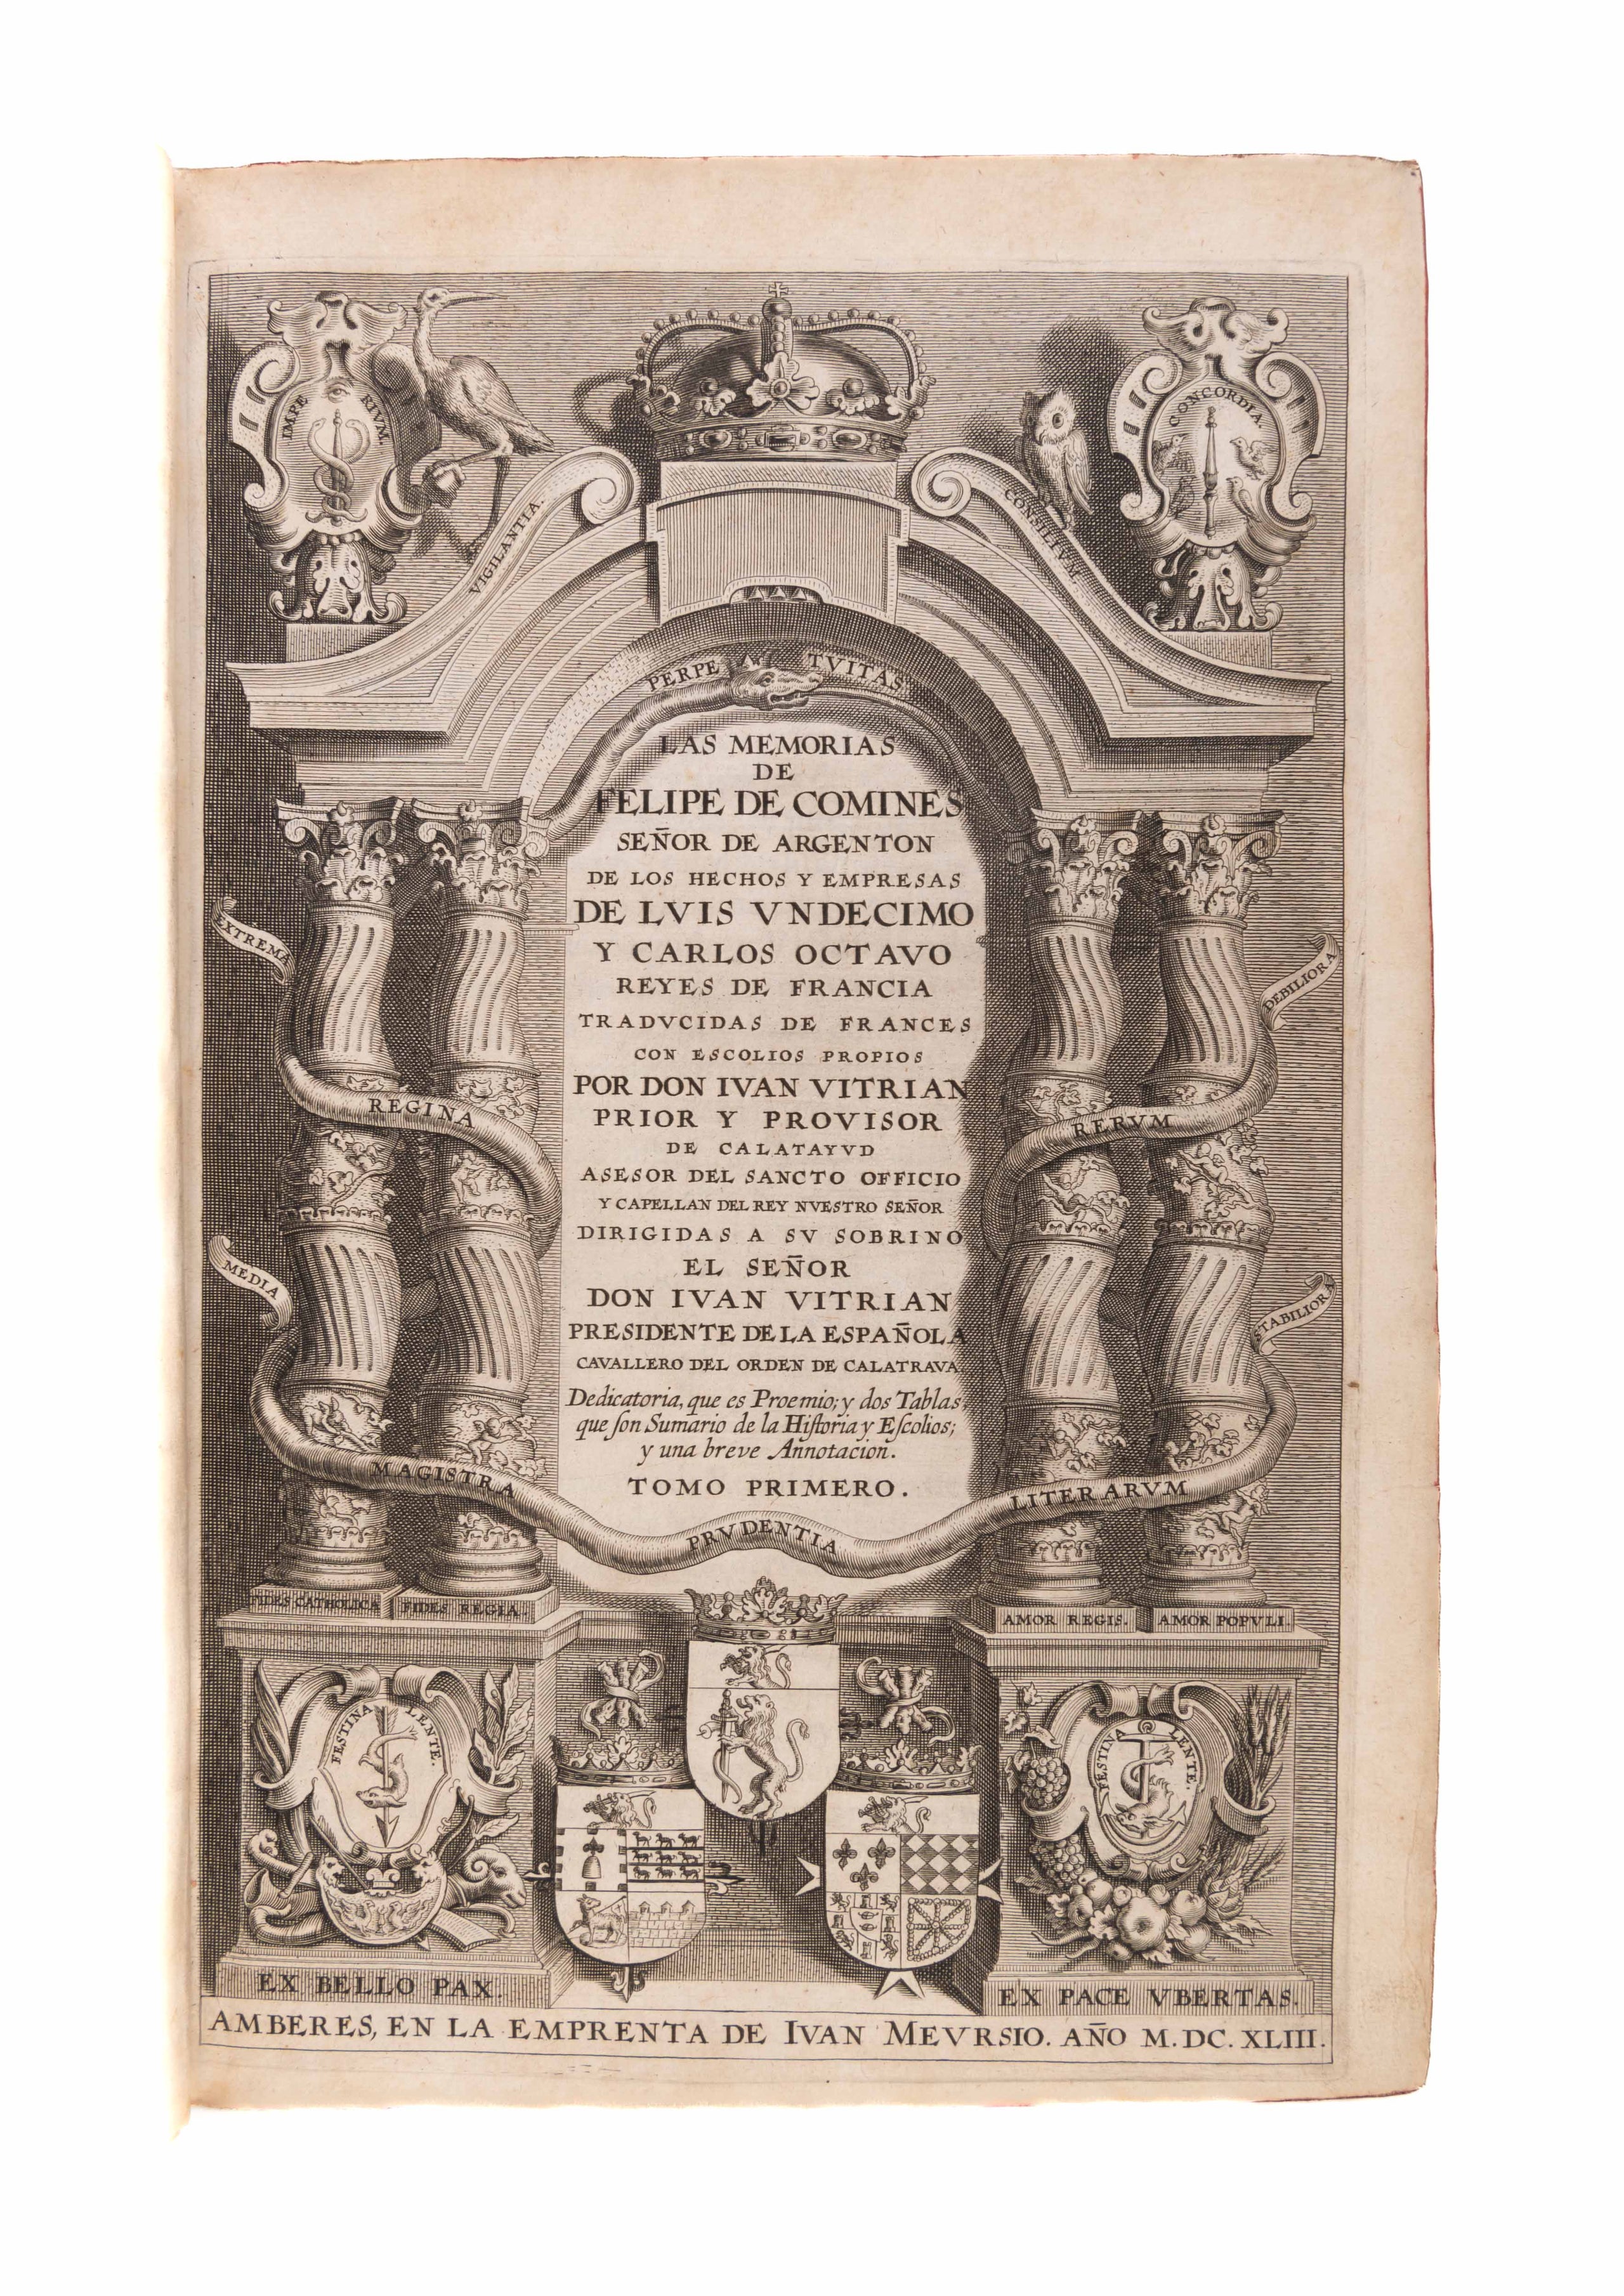 IMPE RIVM.
CONCORDIA.
VIGILANTIA.
CONSILIVM
PERPE TVITAS
LAS MEMORIAS
DE
FELIPE DE COMINES
SEÑOR DE ARGENTON
DE LOS HECHOS Y EMPRESAS
DE LVIS VNDECIMO
Y CARLOS OCTAVO
REYES DE FRANCIA
TRADVCIDAS DE FRANCES
CON ESCOLIOS PROPIOS
POR DON IVAN VITRIAN
PRIOR Y PROVISOR
DE CALATAYVD
ASESOR DEL SANCTO OFFICIO
Y CAPELLAN DEL REY NVESTRO SEÑOR
DIRIGIDAS A SV SOBRINO
EL SEÑOR
DON IVAN VITRIAN
PRESIDENTE DE LA ESPAÑOLA
CAVALLERO DEL ORDEN DE CALATRAVA
Dedicatoria, que es Proemio; y dos Tablas,
que ſon Sumario de la Hiſtoria y Eſcolios;
y una breve Annotacion.
TOMO PRIMERO.
EXTREMA
DEBILIORA
REGINA
RERVM
MEDIA
STABILIORA
MAGISTRA
LITERARVM
PRVDENTIA
FIDES CATHOLICA
FIDES REGIA.
AMOR REGIS.
AMOR POPVLI.
FESTINA LENTE.
FESTINA LENTE.
EX BELLO PAX.
EX PACE VBERTAS.
AMBERES, EN LA EMPRENTA DE IVAN MEVRSIO. AÑO M. DC. XLIII.